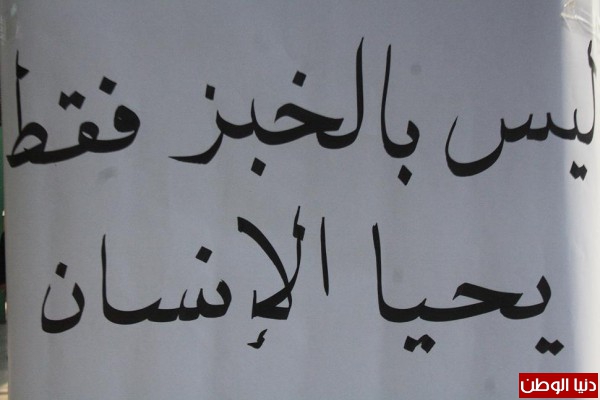 ليس بالخبز فقط
يحيا الإنسان
دنيا الوطن